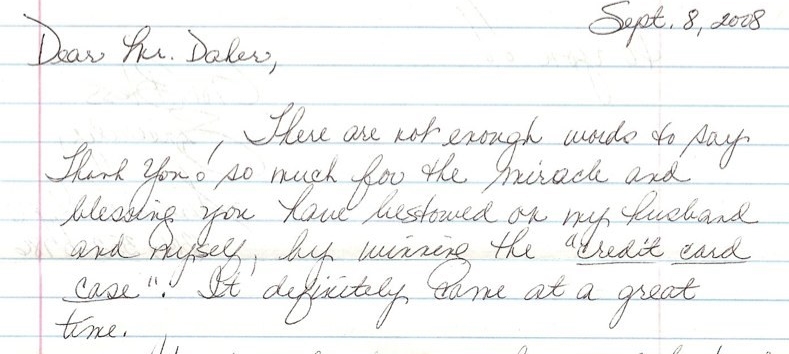 Sept. 8, 2008
Dear Mr. Daher,
There are not enough words to say
Thank You! so much for the miracle and
blessing you have bestowed on my husband
and myself, by winning the "credit card
case". It definitely came at a great
time.